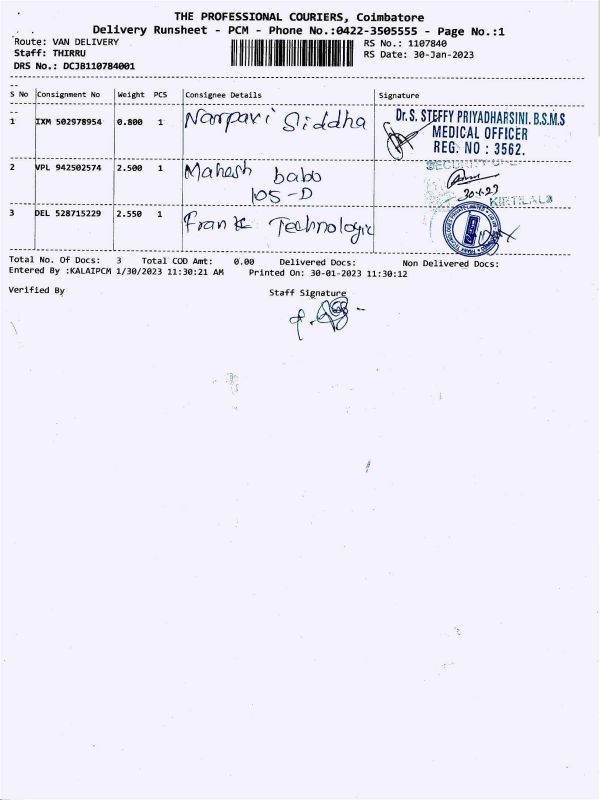 THE PROFESSIONAL COURIERS, Coimbatore
Delivery Runsheet - PCM - Phone No.:0422-3505555 - Page No.:1
Route: VAN DELIVERY RS No.: 1107840
Staff: THIRRU RS Date: 30-Jan-2023
DRS No.: DCJB110784001
S No Consignment No Weight PCS Consignee Details Signature
1 IXM 502978954 0.800 1 Narpavi Siddha
Dr. S. STEFFY PRIYADHARSINI. B.S.M.S
MEDICAL OFFICER
REG. NO : 3562.
2 VPL 942502574 2.500 1 Mahesh babo
105-D
KIRTILALS
3 DEL 528715229 2.550 1 Frank Technologic
Total No. Of Docs: 3 Total COD Amt: 0.00 Delivered Docs: Non Delivered Docs:
Entered By :KALAIPCM 1/30/2023 11:30:21 AM Printed On: 30-01-2023 11:30:12
Verified By Staff Signature